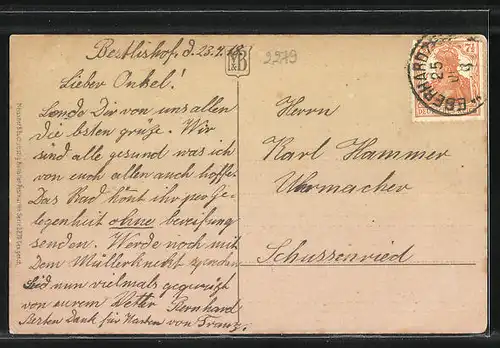 Bestlishof, d. 25.7.18.
2279
Lieber Onkel!
Sende Dir von uns allen
die besten grüße. Wir
sind alle gesund was ich
von euch allen auch hoffe.
Das Rad könt ihr per Ge-
legenheit ohne bereifung
senden. Werde noch mit
Dem Müllerknecht
Seid nun vielmals gegrüßt
von eurem Vetter Bernhard
Besten Dank für Karten von Franz.
Herrn
Karl Hammer
Uhrmacher
Schussenried
EBERHARDZELL
25
7½